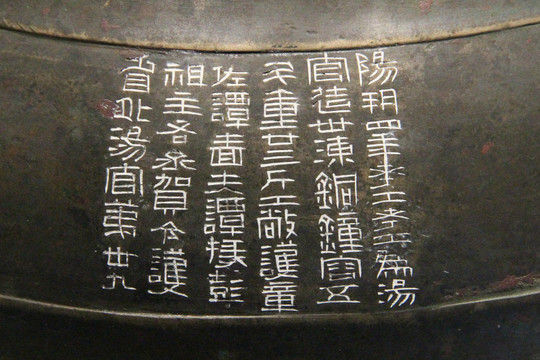 陽朔四年考工工為湯
官造卅湅銅鍾容五
斗重卅三斤工敞護
佐譚嗇夫譚掾彭
祖主右丞賀令護
省北湯官第卅九